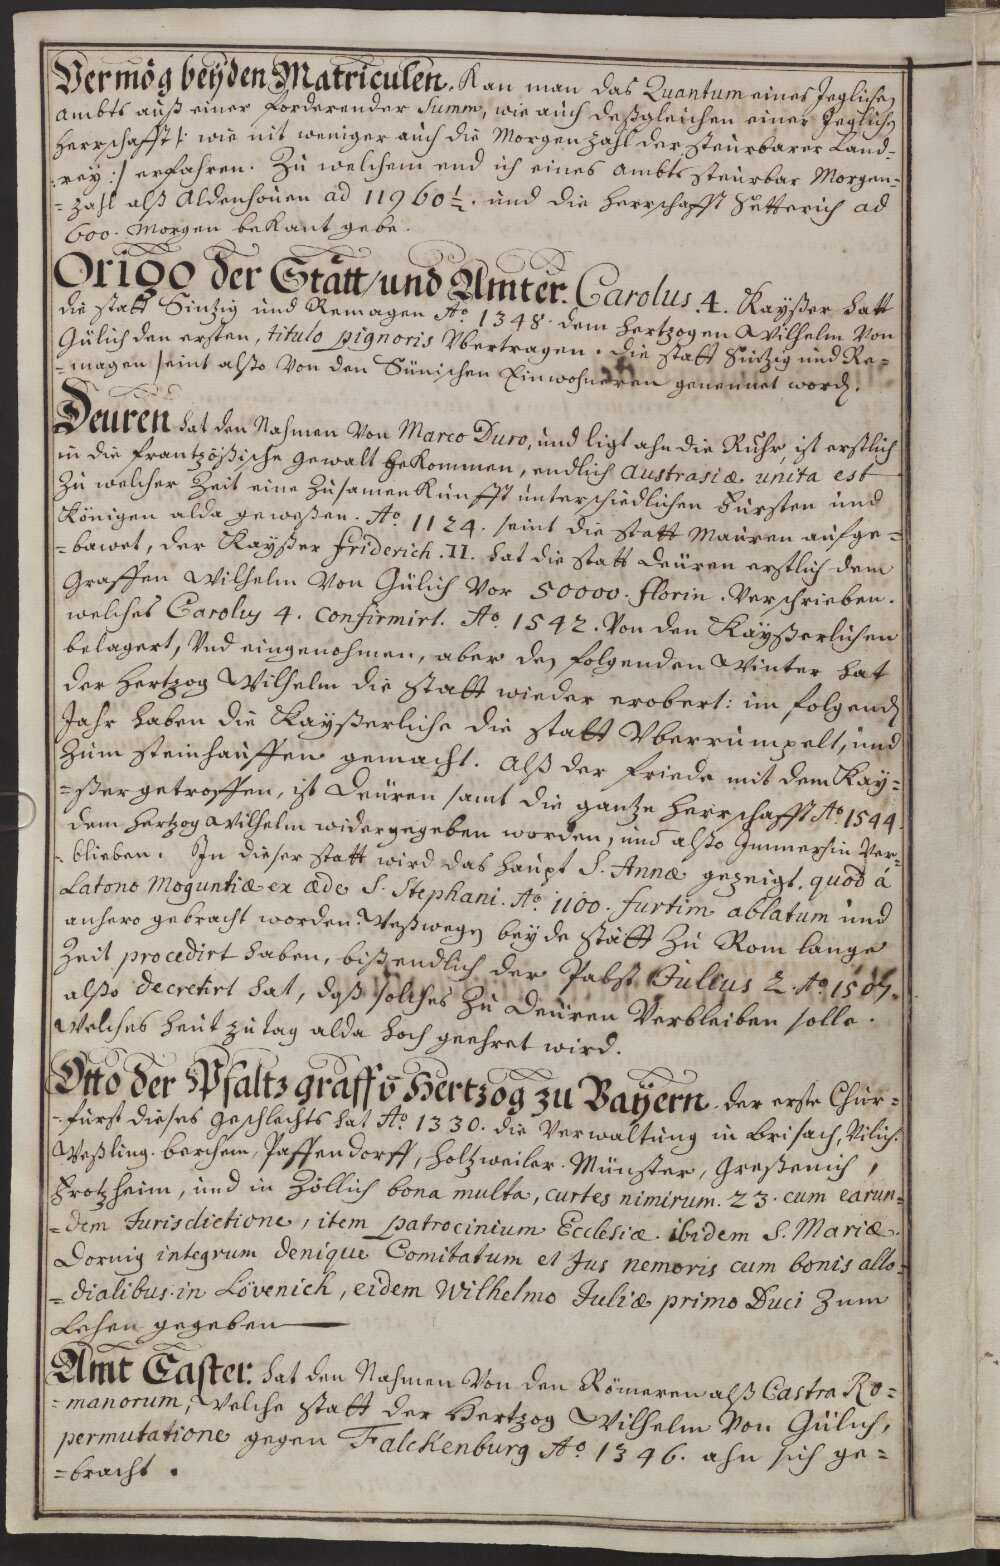 Vermög beÿden Matriculen. Kan man das Quantum eines Jeglichen
Ambts auß einer forderender Summ, wie auch deßgleichen einer Jeglichen
Herrschafft /: wie nit weniger auch die Morgenzahl der steurbarer Länd=
=rey :/ erfahren. Zu welchem end ich eines Ambts steurbar Morgen=
=zahl alß Aldenhouen ad 11960½. und die Herrschafft Setterich ad
600. Morgen bekant gebe.
Origo der Stätt/und Ämter. Carolus. 4. Kaÿßer hatt
die statt Sintzig und Remagen Aº. 1348. dem Hertzogen Wilhelm Von
Gülich den ersten, titulo pignoris Vbertragen. Die statt Sintzig und Re=
=magen seint alßo Von den Sünischen Einwohneren genennet word.
Deuren hat den Nahmen Von Marco Duro, und ligt ahn die Ruhr, ist erstlich
in die Frantzößische gewalt gekommen, endlich Austrasiæ unita est
Zu welcher Zeit eine Zusamenkunfft unterschiedlichen Fürsten und
Königen alda geweßen. Aº. 1124. seint die statt Mauren aufge=
=bawet, der Kaÿßer friderich. II. hat die statt Deüren erstlich dem
Graffen Wilhelm Von Gülich Vor 50000. florin. Verschrieben.
welches Carolus 4. confirmirt. Aº. 1542. Von den Kaÿßerlichen
belagert, Vnd eingenohmen, aber den folgenden Winter hat
der Hertzog Wilhelm die statt wieder erobert: im folgend
Jahr haben die Kaÿßerliche die statt Vberrumpelt, und
Zum steinhauffen gemacht. Alß der Friede mit dem Kaÿ=
=ßer getroffen, ist Deüren samt die gantze Herrschafft Aº. 1544
dem Hertzog Wilhelm widergegeben worden, und alßo Immerhin Ver=
=blieben. In dieser statt wird das Haupt S. Annæ gezeigt. quod á
Latono Moguntiæ ex æde S. Stephani. Aº. 1100. furtim ablatum und
anhero gebracht worden. Weßwegen beyde stätt Zu Rom lange
Zeit procedirt haben, biß endlich der Pabst Julius 2. Aº. 1507.
alßo decretirt hat, daß solches Zu Deüren Verbleiben solle.
Welches heut zu tag alda hoch geehret wird.
Otto der Pfaltz graff v̄ Hertzog zu Baÿern. der erste Chur=
=fürst dieses Geschlechts hat Aº. 1330. die Verwaltung in Brisach, Vilich
Weßling. berchem, Paffendorff, Holtzweiler. Münster, Greßenich,
Frotzheim, und in Zöllich bona multa, curtes nimirum. 23. cum earun=
=dem Jurisdictione, item patrocinium Ecclesiæ. ibidem S. Mariæ.
Dornig integrum denique Comitatum et Jus nemoris cum bonis allo=
=dialibus. in Lövenich, eidem Wilhelmo Juliæ primo Duci Zum
Lehen gegeben
Amt Caster. hat den Nahmen Von den Römeren alß Castra Ro=
=manorum, Welche statt der Hertzog Wilhelm Von Gülich,
permutatione gegen Falckenburg Aº. 1346. ahn sich ge=
=bracht.